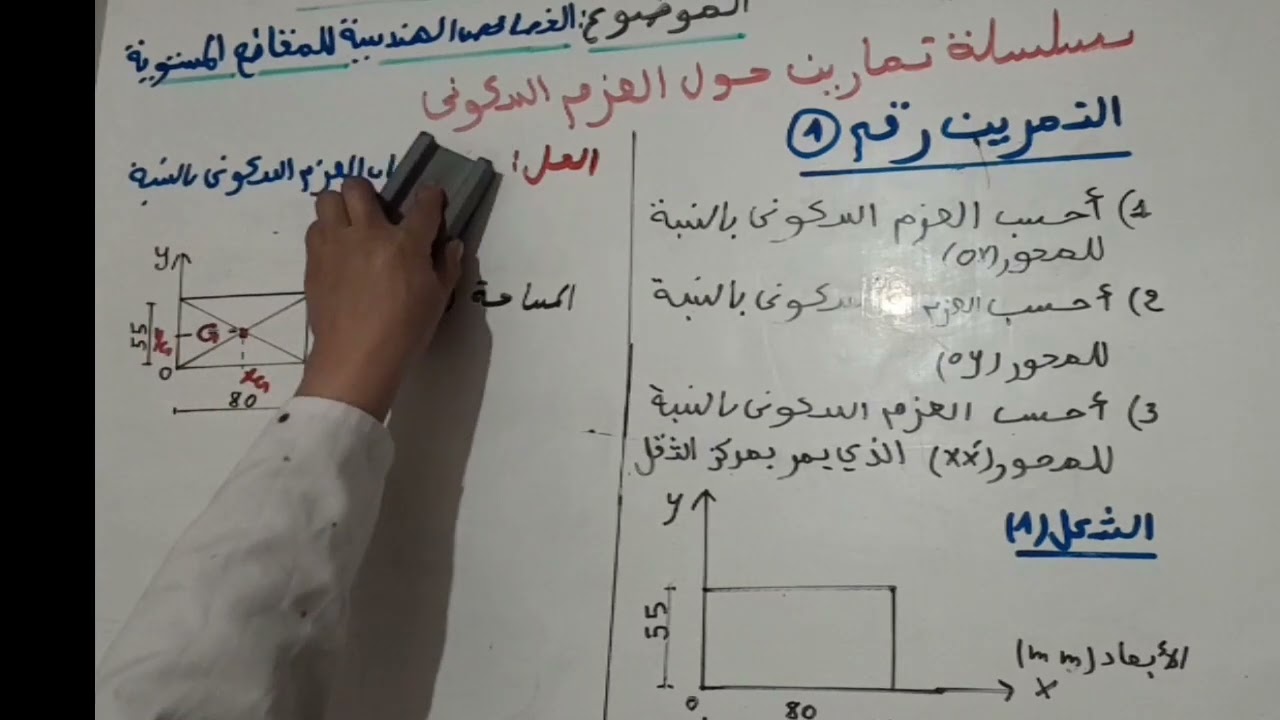 الموضوع: الخصائص الهندسية للمقاطع المستوية
سلسلة تمارين حول العزم السكوني
التمرين رقم (1)
1) أحسب العزم السكوني بالنسبة
للمحور (ox)
2) أحسب العزم السكوني بالنسبة
للمحور (oy)
3) أحسب العزم السكوني بالنسبة
للمحور (xx') الذي يمر بمركز الثقل
الشكل (1)
y
55
0
80
x
الأبعاد (mm)
الحل:
العزم السكوني بالنسبة
المساحة
y
55
yG
G
0
xG
80